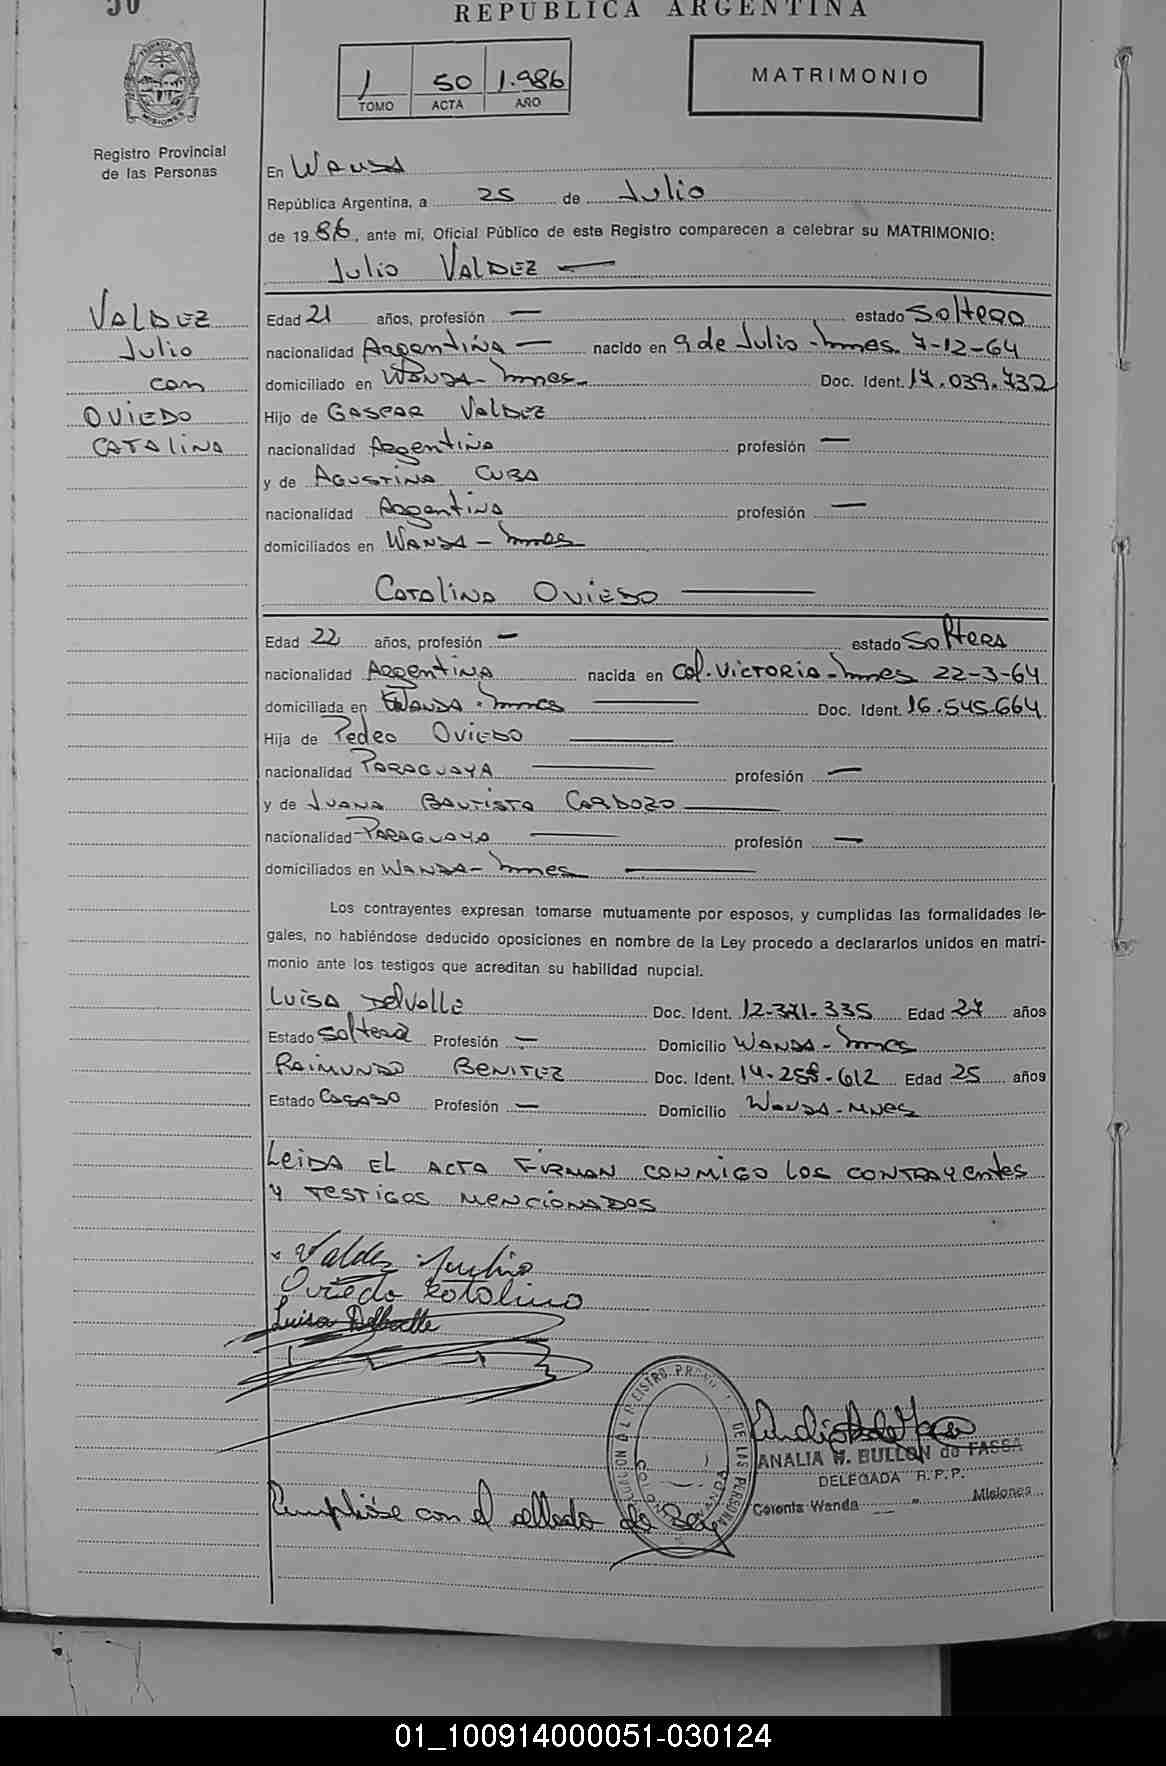 50
REPUBLICA ARGENTINA
PROVINCIA DE MISIONES
1 50 1.986
TOMO ACTA AÑO
MATRIMONIO
Registro Provincial
de las Personas
En WANDA
República Argentina, a 25 de Julio
de 19 86, ante mi, Oficial Público de este Registro comparecen a celebrar su MATRIMONIO:
Julio VALDEZ —
VALDEZ
Julio
con
OVIEDO
CATALINA
Edad 21 años, profesión — estado Soltero
nacionalidad Argentina — nacido en 9 de Julio - Mnes. 7-12-64
domiciliado en WANDA - Mnes. Doc. Ident. 17.039.732
Hijo de GASPAR VALDEZ
nacionalidad Argentina profesión —
y de AGUSTINA CUBA
nacionalidad Argentina profesión —
domiciliados en WANDA - Mnes
CATALINA OVIEDO —
Edad 22 años, profesión — estado Soltera
nacionalidad Argentina nacida en Col. VICTORIA - Mnes 22-3-64
domiciliada en WANDA - Mnes — Doc. Ident. 16.545.664
Hija de Pedro OVIEDO —
nacionalidad PARAGUAYA — profesión —
y de JUANA BAUTISTA CARDOZO —
nacionalidad PARAGUAYA — profesión —
domiciliados en WANDA - Mnes —
Los contrayentes expresan tomarse mutuamente por esposos, y cumplidas las formalidades le-
gales, no habiéndose deducido oposiciones en nombre de la Ley procedo a declararlos unidos en matri-
monio ante los testigos que acreditan su habilidad nupcial.
LUISA DELVALLE Doc. Ident. 12-371-335 Edad 27 años
Estado Soltera Profesión — Domicilio WANDA - Mnes
RAIMUNDO BENITEZ Doc. Ident. 14-258-612 Edad 25 años
Estado CASADO Profesión — Domicilio WANDA - MNES
LEIDA EL ACTA FIRMAN CONMIGO LOS CONTRAYENTES
Y TESTIGOS MENCIONADOS
Valdez Julio
Oviedo Catalina
Luisa Delvalle
ANALIA M. BULLON de FASSA
DELEGADA R.P.P.
Colonia Wanda — " Misiones
Cumplióse con el sellado de Ley
01_100914000051-030124